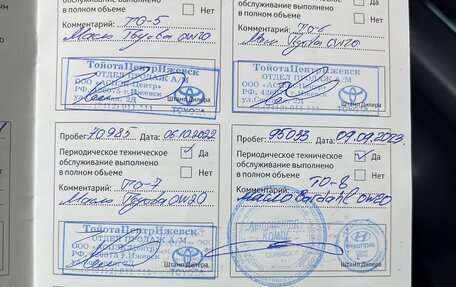 обслуживание выполнено
в полном объеме
Нет
Комментарий: ТО-5
Масло Toyota 0W20
ТойотаЦентрИжевск
ОТДЕЛ ПРОДАЖ А/М
Штамп Дилера
TOYOTA
обслуживание выполнено
в полном объеме
Нет
Комментарий: ТО-6
Масло Toyota 0W20
ТойотаЦентрИжевск
ОТДЕЛ ПРОДАЖ А/М
Штамп Дилера
Пробег: 70985 Дата: 06.10.2022
Периодическое техническое
обслуживание выполнено
в полном объеме
Да
Нет
Комментарий: ТО-7
Масло Toyota 0W20
ТойотаЦентрИжевск
ОТДЕЛ ПРОДАЖ А/М
Штамп Дилера
TOYOTA
Пробег: 95033 Дата: 09.09.2023
Периодическое техническое
обслуживание выполнено
в полном объеме
Да
Нет
Комментарий: ТО-8
Масло Bardahl 0W20
HYUNDAI
Штамп Дилера